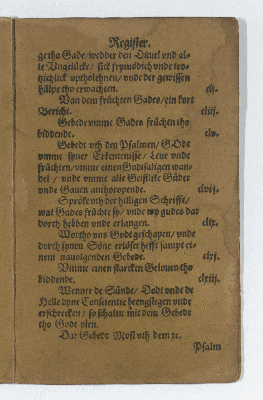 Register.
ge tho Gade / wedder den Düuel vnd al-
le Vngelücke / sick frymödich vnde tro-
tzichlick vptholehnen / vnde der gewissen
hülpe tho erwachten. clj.
Van dem früchten Gades / ein kort
Bericht. cliij.
Gebede vmme Gades früchten tho
biddende. clv.
Gebedt vth den Psalmen / GOdt
vmme syner Erkentenisse / Leue vnde
früchten / vmme einen Godtsaligen wan-
del / vnde vmme alle Geistlike Güder
vnde Gauen anthoropende. clvij.
Spröke vth der hilligen Schrifft /
wat Gades früchte sy / vnde wy gudes dar
dorch hebben vnde erlangen. clix.
Wortho vns Godt geschapen / vnde
dorch synen Söne erlöset hefft sampt ei-
nem nauolgenden Gebede. clxj.
Vmme einen starcken Gelouen tho
biddende. clxiij.
Wenner de Sünde / Dodt vnde de
Helle dyne Conscientie beengstigen vnde
erschrecken / so schaltu mit dem Gebede
tho Godt flen.
Dat Gebedt Mosi vth dem xc.
Psalm